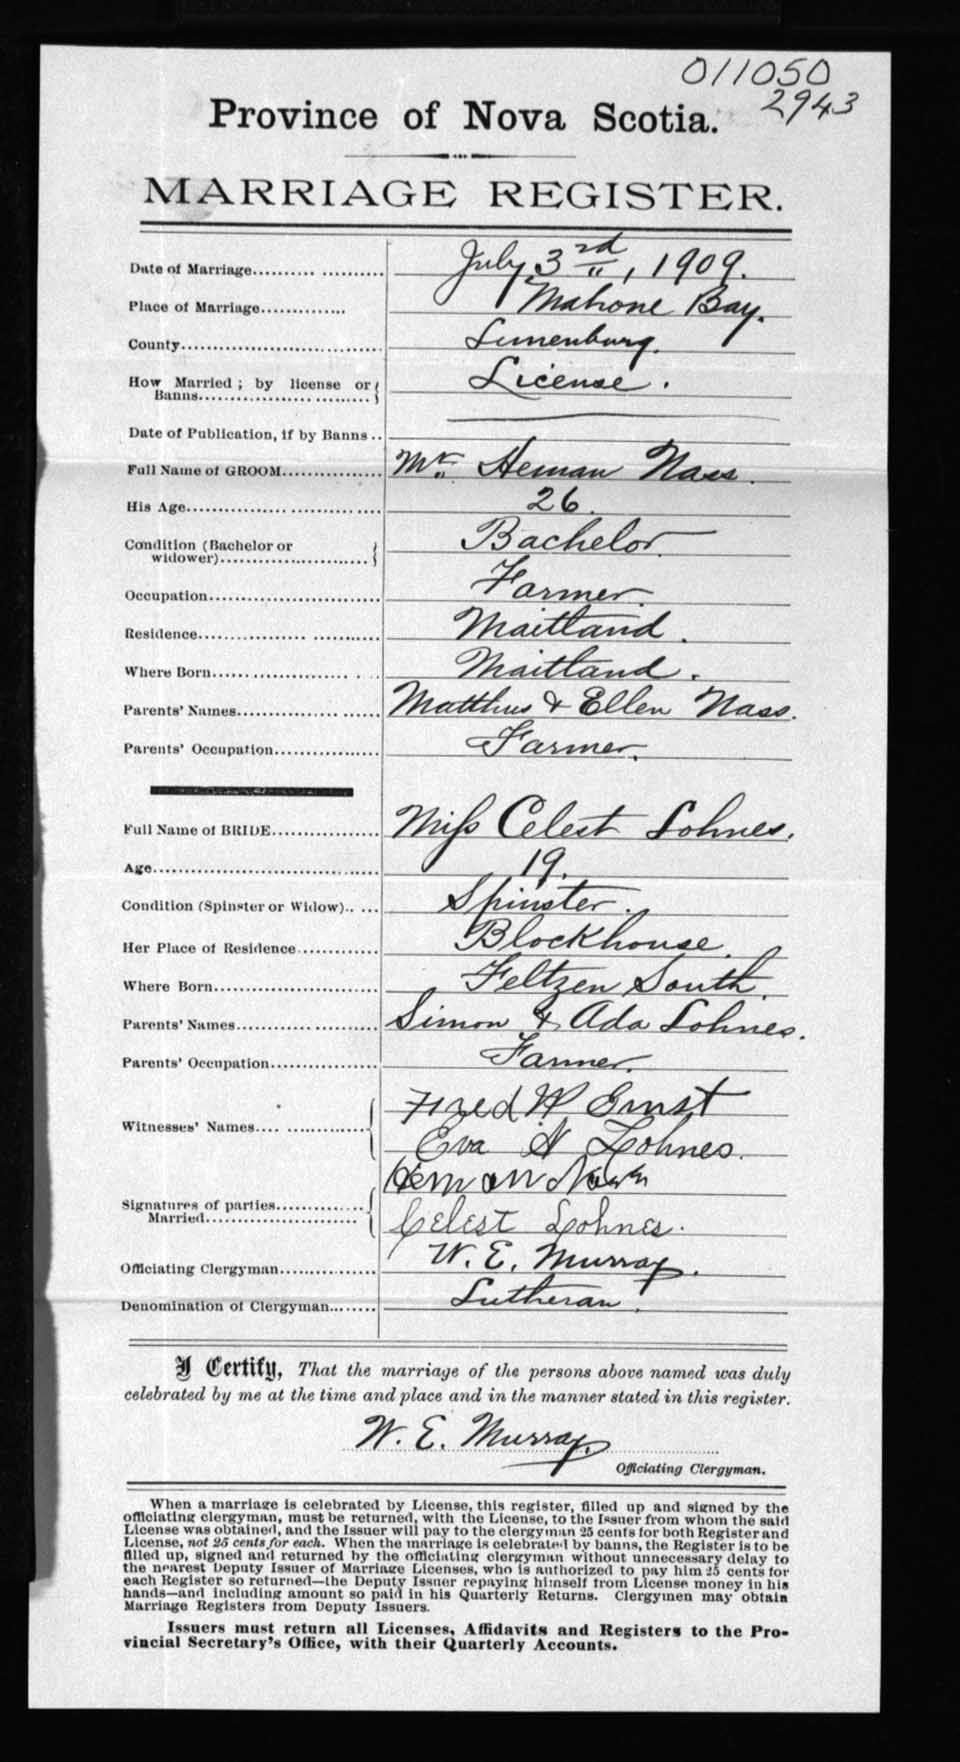 011050
2943
Province of Nova Scotia.
MARRIAGE REGISTER.
Date of Marriage.......... ........... July 3rd, 1909.
Place of Marriage.............. Mahone Bay.
County.................................... Lunenburg.
How Married ; by license or License.
Banns.................... .........
Date of Publication, if by Banns ..
Full Name of GROOM................. Mr. Heman Nass.
His Age..................... ............ 26.
Condition (Bachelor or Bachelor.
widower)..........................
Occupation.............................. Farmer.
Residence.................. ............ Maitland.
Where Born........................ . ... Maitland.
Parents' Names.................. ...... Matthus & Ellen Nass.
Parents' Occupation.................. Farmer.
Full Name of BRIDE.................. Miss Celest Lohnes.
Age........................................ 19.
Condition (Spinster or Widow).. ... Spinster.
Her Place of Residence............. Blockhouse.
Where Born............................. Feltzen South.
Parents' Names............. ............ Simon & Ada Lohnes.
Parents' Occupation.................. Farmer.
Fred W Ernst
Witnesses' Names.... ..............
Eva N Lohnes.
Heman Nass
Signatures of parties..............
Married........................ Celest Lohnes.
Officiating Clergyman................ W. E. Murray.
Denomination of Clergyman........ Lutheran.
I Certify, That the marriage of the persons above named was duly
celebrated by me at the time and place and in the manner stated in this register.
W. E. Murray.
Officiating Clergyman.
When a marriage is celebrated by License, this register, filled up and signed by the
officiating clergyman, must be returned, with the License, to the Issuer from whom the said
License was obtained, and the Issuer will pay to the clergyman 25 cents for both Register and
License, not 25 cents for each. When the marriage is celebrated by banns, the Register is to be
filled up, signed and returned by the officiating clergyman without unnecessary delay to
the nearest Deputy Issuer of Marriage Licenses, who is authorized to pay him 25 cents for
each Register so returned—the Deputy Issuer repaying himself from License money in his
hands—and including amount so paid in his Quarterly Returns. Clergymen may obtain
Marriage Registers from Deputy Issuers.
Issuers must return all Licenses, Affidavits and Registers to the Pro-
vincial Secretary's Office, with their Quarterly Accounts.